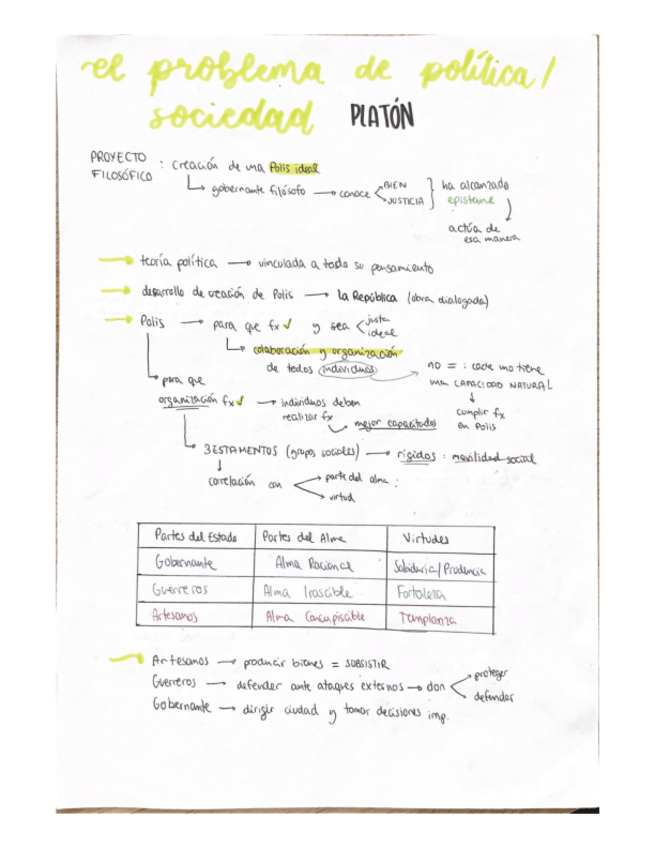 el problema de política/
sociedad PLATÓN
PROYECTO FILOSÓFICO : creación de una Polis ideal
↳ gobernante filósofo → conoce < BIEN JUSTICIA } ha alcanzado episteme
actúa de esa manera
→ teoría política → vinculada a todo su pensamiento
→ desarrollo de creación de Polis → la República (obra dialogada)
→ Polis → para que fx ✓ y sea < justa ideal
↳ colaboración y organización
de todos individuos → no = : cada uno tiene
una CAPACIDAD NATURAL
↓
cumplir fx
en Polis
↳ para que
organización fx ✓ → individuos deben
realizar fx
↳ mejor capacitados
↳ 3 ESTAMENTOS (grupos sociales) → rígidos : movilidad social
↓
correlación con < parte del alma :
virtud
Partes del Estado Partes del Alma Virtudes
Gobernante Alma Racional Sabiduría/Prudencia
Guerreros Alma Irascible Fortaleza
Artesanos Alma Concupiscible Templanza
→ Artesanos → producir bienes = SUBSISTIR
Guerreros → defender ante ataques externos → don < proteger defender
Gobernante → dirigir ciudad y tomar decisiones imp.